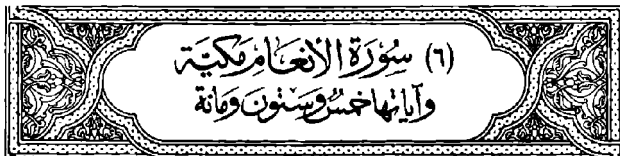 (٦) سُورَةُ الأنعَامِ مَكيَّة
وَآيَاتهَا خَمْسٌ وَسِتُونَ وَمائة